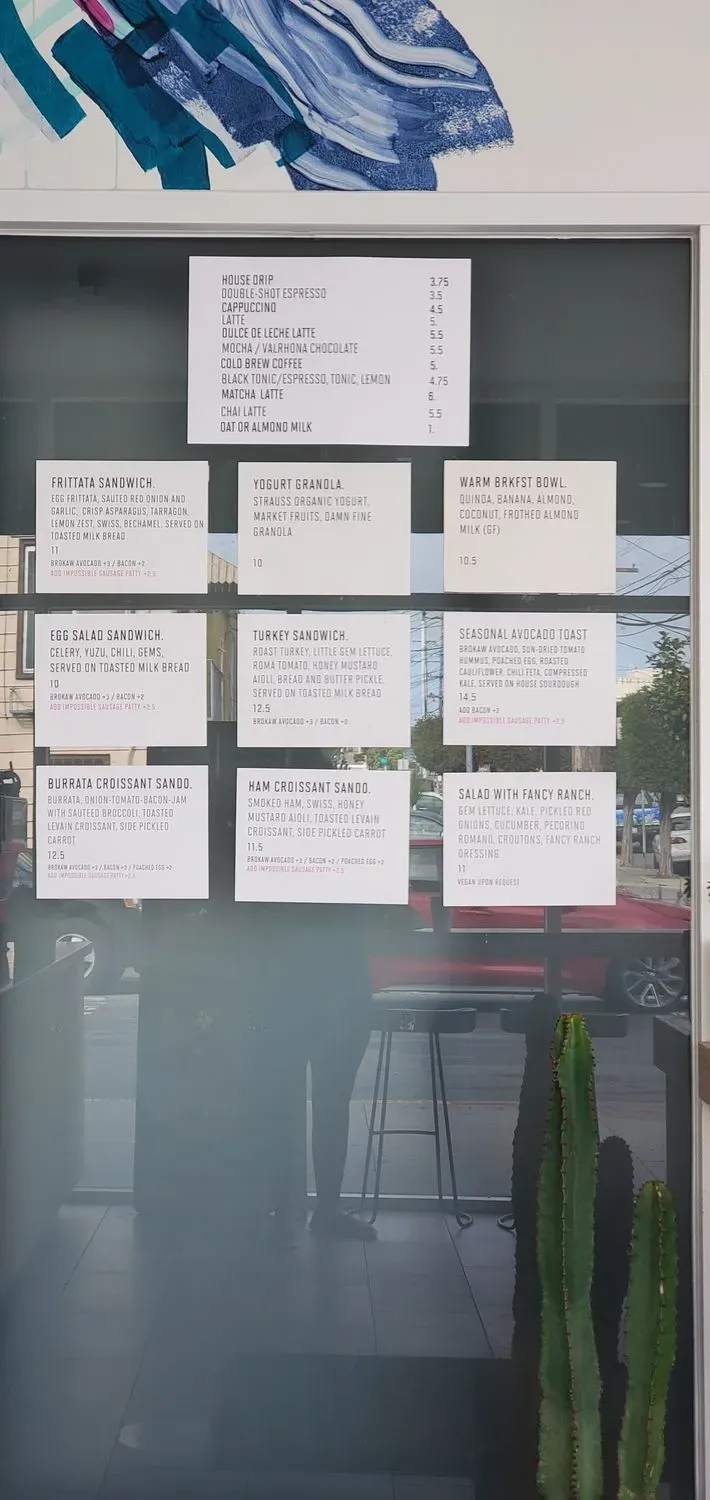 HOUSE DRIP 3.75
DOUBLE-SHOT ESPRESSO 3.5
CAPPUCCINO 4.5
LATTE 5.
DULCE DE LECHE LATTE 5.5
MOCHA / VALRHONA CHOCOLATE 5.5
COLD BREW COFFEE 5.
BLACK TONIC/ESPRESSO, TONIC, LEMON 4.75
MATCHA LATTE 6.
CHAI LATTE 5.5
OAT OR ALMOND MILK 1.
FRITTATA SANDWICH.
EGG FRITTATA, SAUTED RED ONION AND
GARLIC, CRISP ASPARAGUS, TARRAGON,
LEMON ZEST, SWISS, BECHAMEL, SERVED ON
TOASTED MILK BREAD
11
BROKAW AVOCADO +3 / BACON +2
ADD IMPOSSIBLE SAUSAGE PATTY +2.5
YOGURT GRANOLA.
STRAUSS ORGANIC YOGURT,
MARKET FRUITS, DAMN FINE
GRANOLA
10
WARM BRKFST BOWL.
QUINOA, BANANA, ALMOND,
COCONUT, FROTHED ALMOND
MILK (GF)
10.5
EGG SALAD SANDWICH.
CELERY, YUZU, CHILI, GEMS,
SERVED ON TOASTED MILK BREAD
10
BROKAW AVOCADO +3 / BACON +2
ADD IMPOSSIBLE SAUSAGE PATTY +2.5
TURKEY SANDWICH.
ROAST TURKEY, LITTLE GEM LETTUCE,
ROMA TOMATO, HONEY MUSTARD
AIOLI, BREAD AND BUTTER PICKLE,
SERVED ON TOASTED MILK BREAD
12.5
BROKAW AVOCADO +3 / BACON +2
SEASONAL AVOCADO TOAST
BROKAW AVOCADO, SUN-DRIED TOMATO
HUMMUS, POACHED EGG, ROASTED
CAULIFLOWER, CHILI FETA, COMPRESSED
KALE, SERVED ON HOUSE SOURDOUGH
14.5
ADD BACON +2
ADD IMPOSSIBLE SAUSAGE PATTY +2.5
BURRATA CROISSANT SANDO.
BURRATA, ONION-TOMATO-BACON-JAM
WITH SAUTEED BROCCOLI, TOASTED
LEVAIN CROISSANT, SIDE PICKLED
CARROT
12.5
BROKAW AVOCADO +3 / BACON +2 / POACHED EGG +2
ADD IMPOSSIBLE SAUSAGE PATTY +2.5
HAM CROISSANT SANDO.
SMOKED HAM, SWISS, HONEY
MUSTARD AIOLI, TOASTED LEVAIN
CROISSANT, SIDE PICKLED CARROT
11.5
BROKAW AVOCADO +3 / BACON +2 / POACHED EGG +2
ADD IMPOSSIBLE SAUSAGE PATTY +2.5
SALAD WITH FANCY RANCH.
GEM LETTUCE, KALE, PICKLED RED
ONIONS, CUCUMBER, PECORINO
ROMANO, CROUTONS, FANCY RANCH
DRESSING
11
VEGAN UPON REQUEST